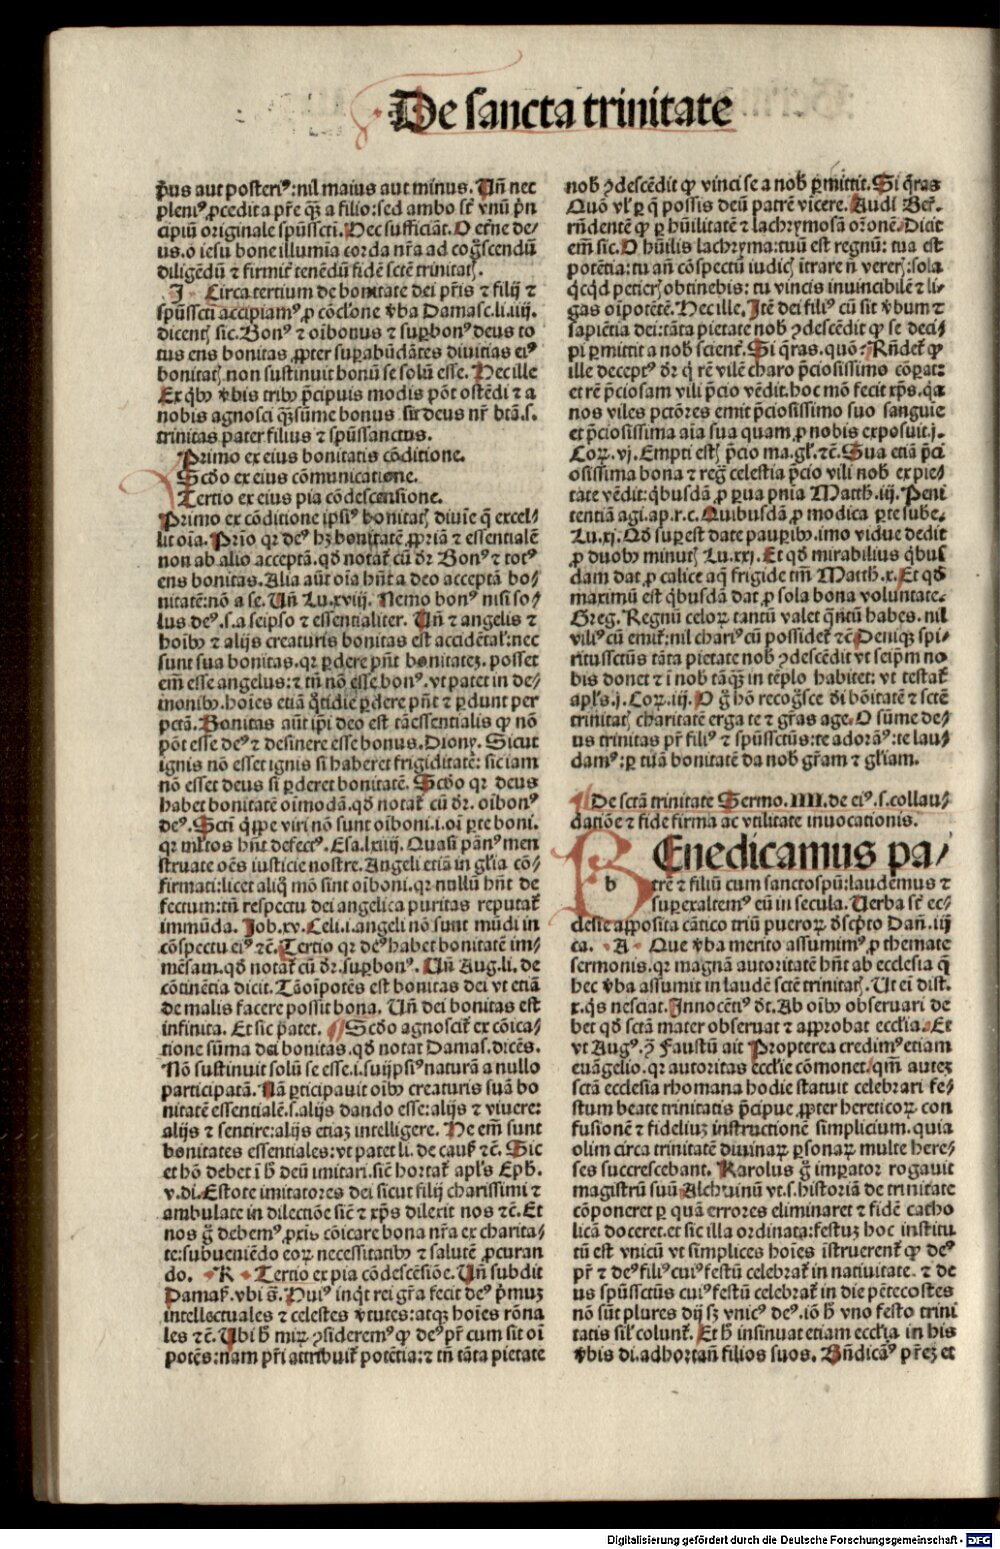 De sancta trinitate
p̄us aut posteriꝰ:nil maius aut minus. Uñ nec
pleniꝰ ꝓcedit a pr̄e qꝫ̄ a filio:sed ambo st̄ vnū pn̄
cipiū originale spūsscti. Hec sufficiāt. O etn̄e de/
us.o iesu bone illumīa corda nr̄a ad cogscendū
diligēdū ⁊ firmit̄ tenēdū fidē scte trinitatꝭ.
J Circa tertium de bonitate dei pr̄is ⁊ filij ⁊
spūssct̄i accipiamꝰ ꝓ cōclone v̄ba Damasc.li.iiij.
dicentꝭ sic. Bonꝰ ⁊ oībonus ⁊ suꝑbonꝰ deus to
tus ens bonitas ꝓpter suꝑabūdātes diuitias eiꝰ
bonitatꝭ.non sustinuit bonū se solū esse. Hec ille
Ex qbꝰ v̄bis tribꝰ p̄cipuis modis pōt ostēdi ⁊ a
nobis agnosci qꝫ sūme bonus sit deus nr̄ btā.s.
trinitas pater filius ⁊ spūssanctus.
Primo ex eius bonitatis cōditione.
Scd̄o ex eius cōmunicatione.
Tertio ex eius pia cōdescensione.
Primo ex cōditione ipsiꝰ bonitatꝭ diuīe q̄ excel/
lit oīa. Prīo qr deꝰ hꝫ bonitatē ꝓpriā ⁊ essentialē
non ab alio acceptā.qd̄ notat̄ cū dr̄ Bonꝰ ⁊ totꝰ
ens bonitas. Alia aūt oīa hn̄t a deo acceptā bo/
nitatē:nō a se. Uñ Lu.xviij. Nemo bonꝰ nisi so/
lus deꝰ.s.a seipso ⁊ essentialiter. Uñ ⁊ angelis ⁊
hoībꝰ ⁊ alijs creaturis bonitas est accidētal̄:nec
sunt sua bonitas.qr ꝑdere pn̄t bonitatez. posset
em̄ esse angelus:⁊ tn̄ nō esse bonꝰ.vt patet in de/
monibꝰ.hoīes etiā qttidie ꝑdere pn̄t ⁊ ꝑdunt per
pctā. Bonitas aūt ipī deo est tā essentialis ꝙ nō
pōt esse deꝰ ⁊ desinere esse bonus. Diony. Sicut
ignis nō esset ignis si haberet frigiditatē: sic iam
nō esset deus si ꝑderet bonitatē. Scd̄o qr deus
habet bonitatē oīmodā.qd̄ notat̄ cū dr̄. oībonꝰ
deꝰ. Scti qppe viri nō sunt oīboni.i.oī ꝑte boni.
qr mltos hn̄t defectꝰ. Esa.lxiiij. Quasi pānꝰ men
struate oēs iusticie nostre. Angeli etiā in glīa cō/
firmati:licet aliq̄ mō sint oīboni.qr nullū hn̄t de
fectum:tn̄ respectu dei angelica puritas reputat̄
immūda. Job.xv. Celi.i.angeli nō sunt mūdi in
cōspectu eiꝰ ⁊c̄. Tertio qr deꝰ habet bonitatē im/
mēsam.qd̄ notat̄ cū dr̄.suꝑbonꝰ. Uñ Aug.li. de
cōtinētia dicit. Tā oīpotēs est bonitas dei vt etiā
de malis facere possit bona. Uñ dei bonitas est
infinita. Et sic patet. Scd̄o agnoscit̄ ex cōica/
tione sūma dei bonitas.qd̄ notat Damas.dicēs.
Nō sustinuit solū se esse.i.suijpsiꝰ naturā a nullo
participatā. Nā ꝑticipauit oībꝰ creaturis suā bo
nitatē essentialē.s.alijs dando esse:alijs ⁊ viuere:
alijs ⁊ sentire:alijs etiaꝫ intelligere. He em̄ sunt
bonitates essentiales:vt patet li. de caus̄ ⁊c̄. Sic
et hō debet ī h̄ deū imitari.sic̄ hortat̄ apl̄s Eph.
v.di. Estote imitatores dei sicut filij charissimi ⁊
ambulate in dilectiōe sic̄ ⁊ xp̄s dilexit nos ⁊c̄. Et
nos ḡ debemꝰ ꝓxīs cōicare bona nr̄a ex charita/
te:subueniēdo eoꝝ necessitatibꝰ ⁊ salutē ꝓcuran
do. K Tertio ex pia cōdescēsiōe. Uñ subdit
Damas̄. vbi s̄. Huiꝰ inqt rei gr̄a fecit deꝰ pmuꝫ
intellectuales ⁊ celestes v̄tutes:atqꝫ hoīes rōna
les ⁊c̄. Ubi h̄ miꝝ ꝯsideremꝰ ꝙ deꝰ pr̄ cum sit oī
potēs:nam pr̄i attribuit̄ potētia:⁊ tn̄ tāta pietate
nob̄ ꝯdescēdit ꝙ vinci se a nob̄ ꝑmittit. Si q̄ras
Quō vl̓ ꝑ q̄ possis deū patrē vīcere. Audi Ber̄.
rn̄dentē ꝙ ꝑ hūilitatē ⁊ lachrymosā orōnē. Dicit
em̄ sic. O hūilis lachryma:tuū est regnū: tua est
potētia:tu añ cōspectum iudicꝭ ītrare n̄ vererꝭ:sola
qcqd petierꝭ obtinebis: tu vincis inuincibilē ⁊ li/
gas oīpotētē. Hec ille. Itē dei filiꝰ cū sit v̄bum ⁊
sapiētia dei:tāta pietate nob̄ ꝯdescēdit ꝙ se deci/
pi ꝑmittit a nob̄ scient̄. Si q̄ras.quō: Rn̄det̄ ꝙ
ille deceptꝰ dr̄ q̄ rē vilē charo p̄ciosissimo cōpat:
et rē p̄ciosam vili p̄cio vēdit.hoc mōo fecit xp̄s.qa
nos viles pctōres emit p̄ciosissimo suo sanguie
et p̄ciosissima aīa sua quam ꝓ nobis exposuit.j.
Coꝝ. vj. Empti estꝭ p̄cio ma.gl̄.⁊c̄. Sua etiā p̄ci
osissima bona ⁊ regꝭ celestia p̄cio vili nob̄ ex pie/
tate vēdit:qbusdā ꝓ ꝑua pnīa Matth. iij. Peni
tentiā agi.ap.r.c. Quibusdā ꝓ modica ꝑte sube.
Lu.xj. Qd̄ suꝑest date pauꝑibꝰ.imo vidue dedit
ꝓ duobꝰ minutꝭ Lu.xxj. Et qd̄ mirabilius qbus
dam dat ꝓ calice aq̄ frigide tm̄ Matth.x. Et qd̄
maximū est qbusdā dat ꝓ sola bona voluntate.
Greg. Regnū celoꝝ tantū valet qntū habes. nil
viliꝰ cū emit̄:nil chariꝰ cū possidet̄ ⁊c̄. Deniqꝫ spi/
ritussctūs tāta pietate nob̄ ꝯdescēdit vt seip̄m no
bis donet ⁊ ī nob̄ tāqꝫ̄ in tēplo habitet: vt testat̄
apl̄s.j. Coꝝ.iij. O ḡ hō recogsce dī bōitatē ⁊ scte
trinitatꝭ charitatē erga te ⁊ gr̄as age. O sūme de/
us trinitas pr̄ filiꝰ ⁊ spūssctūs:te adoraꝰ:te lau/
damꝰ:ꝑ tuā bonitatē da nob̄ gr̄am ⁊ glīam.
De sctā trinitate Sermo.IIII.de eiꝰ.s.collau/
datiōe ⁊ fide firma ac vtilitate inuocationis.
BEnedicamus pa/
b
trē ⁊ filiū cum sanctospū:laudemus ⁊
suꝑexaltemꝰ eū in secula. Uerba st̄ ec/
clesie apposita cātico triū pueroꝝ d̄scpto Dañ.iij
ca. A Que v̄ba merito assumimꝰ ꝓ themate
sermonis.qr magnā autoritatē hn̄t ab ecclesia q̄
hec v̄ba assumit in laudē scte trinitatꝭ. Ut ei dist.
r.qs nesciat. Innocētiꝰ dt̄. Ab oībꝰ obseruari de
bet qd̄ sctā mater obseruat ⁊ approbat ecclīa. Et
vt Augꝰ.ꝯ̄ Faustū ait Propterea credimꝰ etiam
euāgelio.qr autoritas eccl̄ie cōmonet.qm̄ autez
sctā ecclesia rhomana hodie statuit celebrari fe/
stum beate trinitatis p̄cipue ꝓpter hereticoꝝ con
fusionē ⁊ fideliuꝫ instructionē simplicium. quia
olim circa trinitatē diuinaꝝ ꝑsonaꝝ multe here/
ses succrescebant. Karolus ḡ imꝑator rogauit
magistrū suū Alchuinū vt.s.historiā de trinitate
cōponeret ꝑ quā errores eliminaret ⁊ fidē catho
licā doceret.et sic illa ordinata:festuꝫ hoc institu
tū est vnicū vt simplices hoīes īstruerent̄ ꝙ deꝰ
pr̄ ⁊ deꝰ filiꝰ cuiꝰ festū celebrat̄ in natiuitate. ⁊ de
us spūssctūs cuiꝰ festū celebrat̄ in die pētecostes
nō sūt plures dij sꝫ vnicꝰ deꝰ.iō h̄ vno festo trini
tatis sil̓ colunt̄. Et h̄ insinuat etiam ecclīa in his
v̄bis di.adhortan̄ filios suos. Bn̄dicāꝰ pr̄eꝫ et
Digitalisierung gefördert durch die Deutsche Forschungsgemeinschaft - DFG